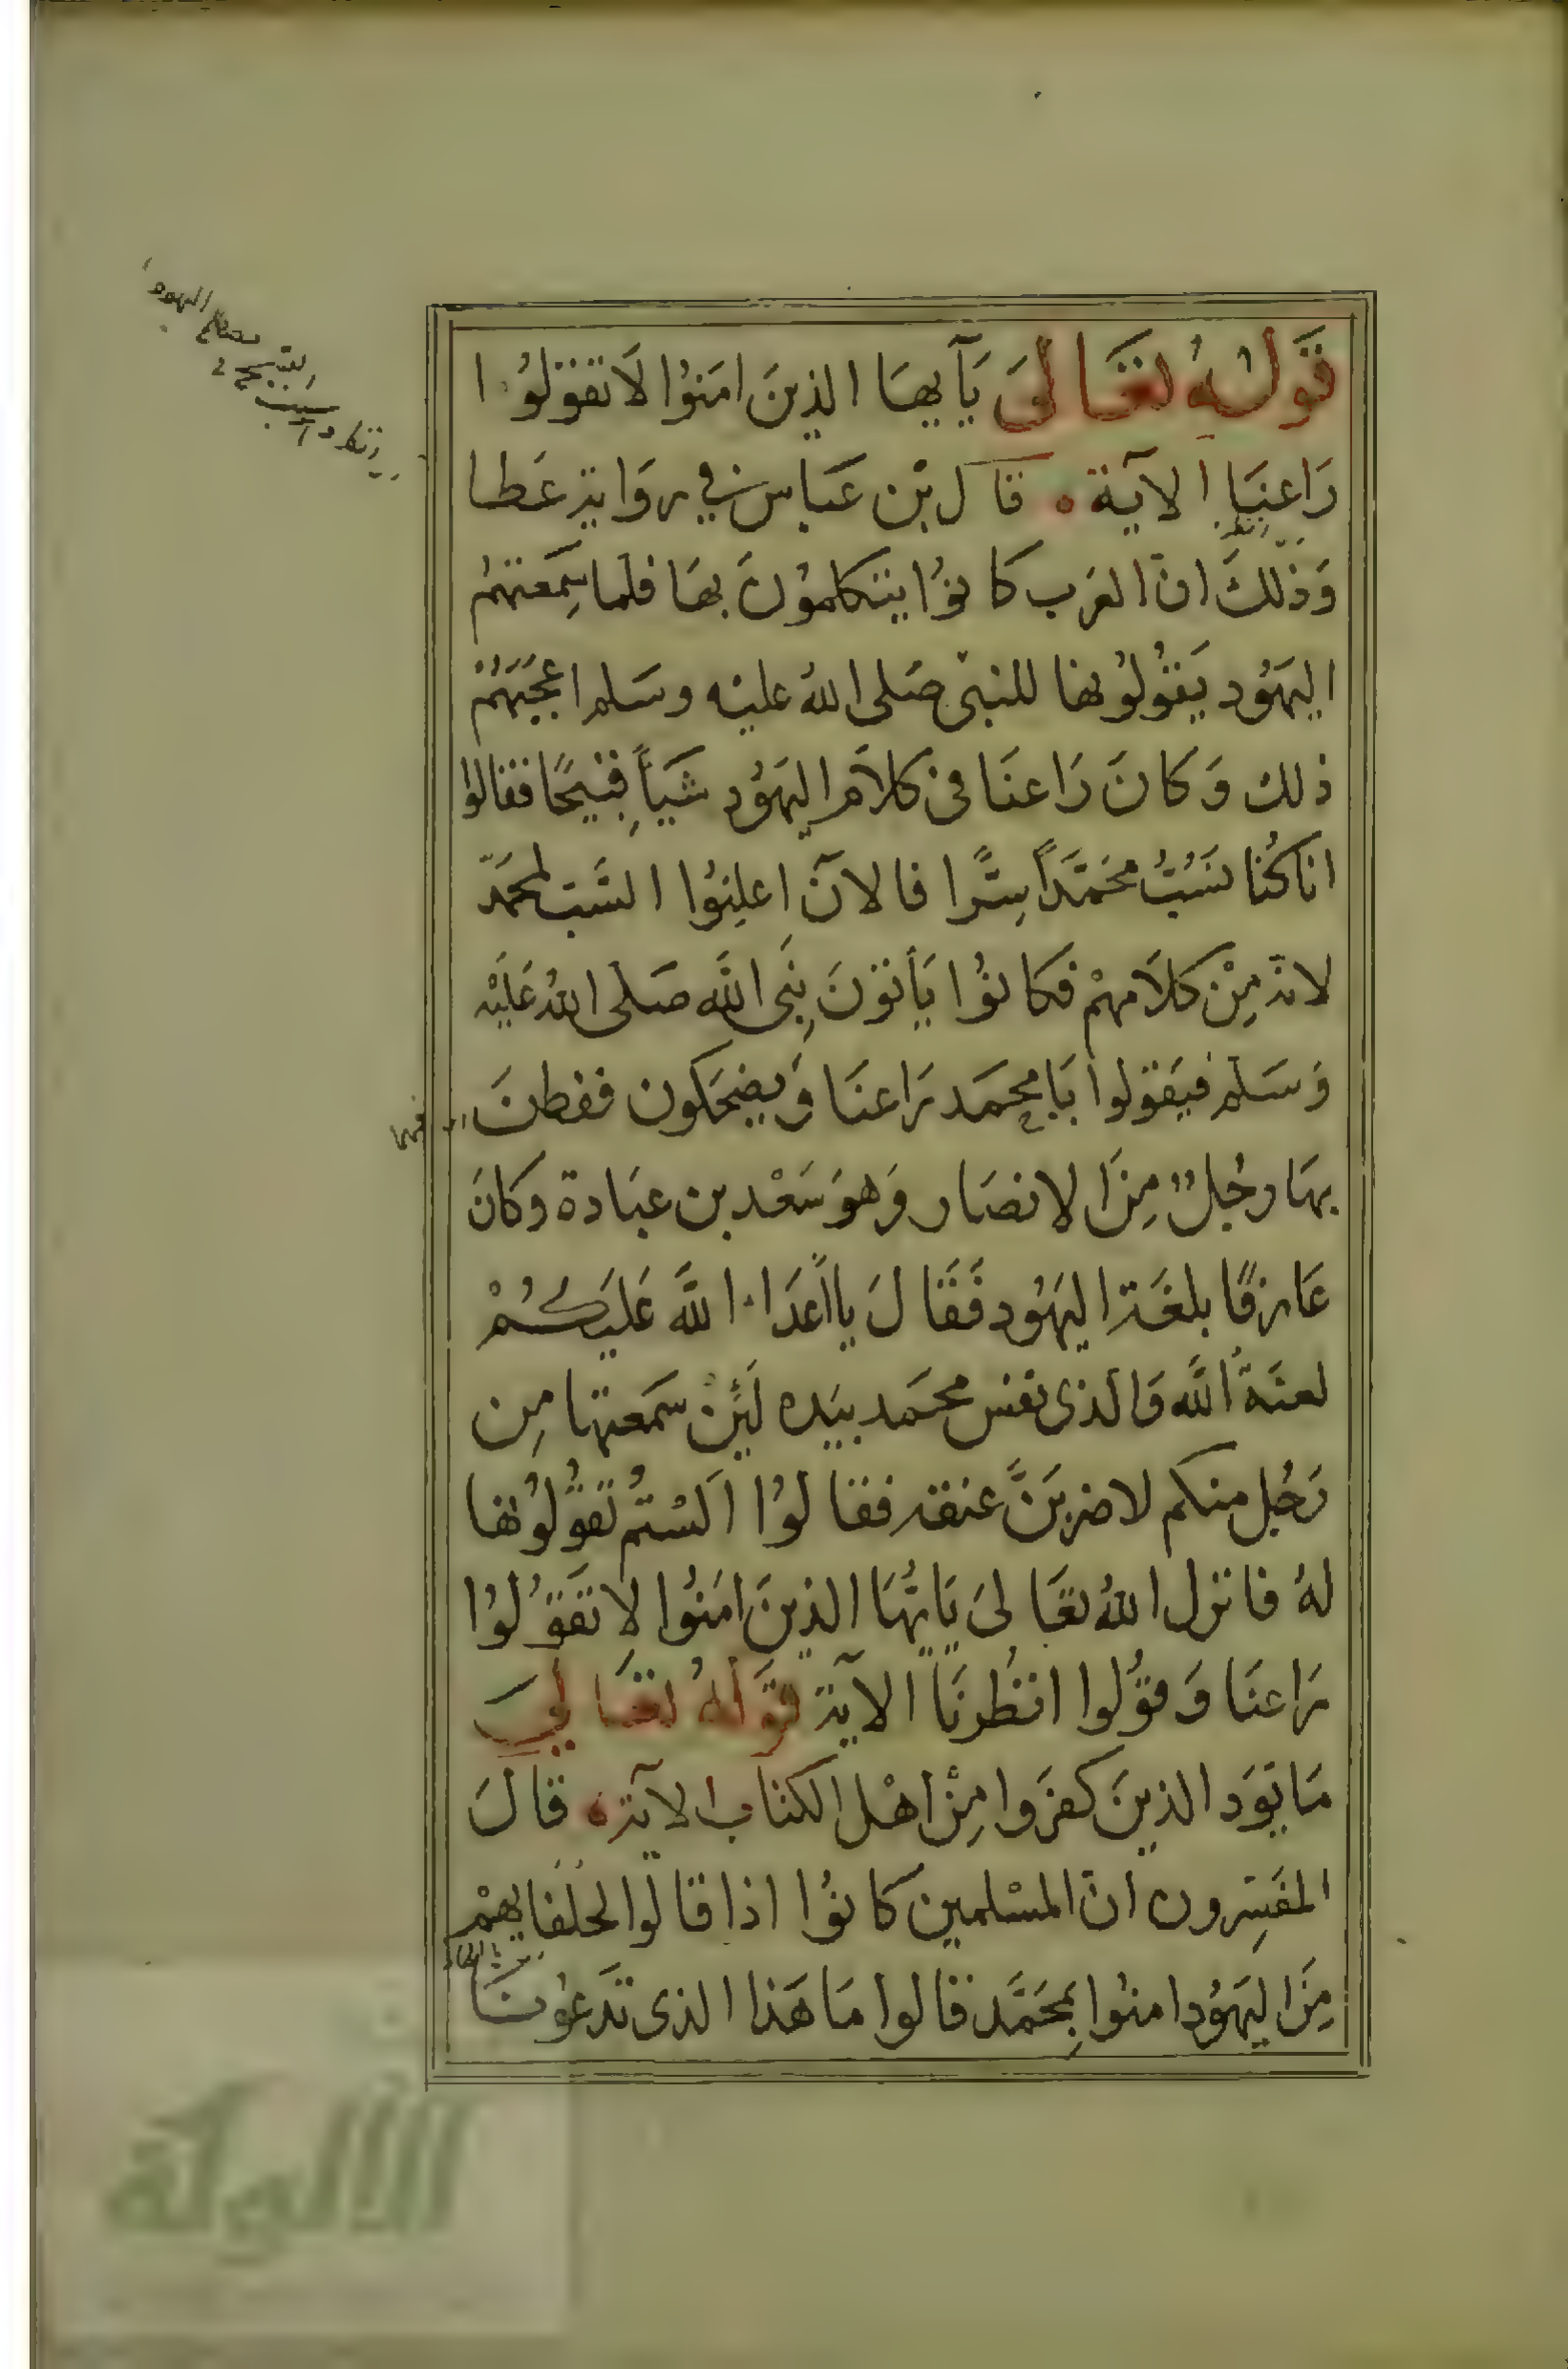 قَولُهُ تعَالىَ يَآيهَا الذينَ امَنوُا لاَ تقولوُا
رَاعِنَا الآية ه قال بْن عَباس في روَاية عَطا
وَذلكَ انّ العَرب كانوُا يتكلموُنَ بهَا فلما سِمَعتهمُ
اليهَوُد يَقُولوُنها للنبىّ صَلى اللهُ عليْه وسَلم اعجَبَهُمْ
ذلك وَكانَ رَاعنَا فى كلاَمِ اليهَوُد شَيأً قبَيحًا فقالوا
انا كُنا نسَبُّ محَمَّداً سِرًّا فالآنَ اعلِنوُا السَّب لمحمَّد
لانهّ مِنْ كلاَمهمْ فكانوُا يَأتوَن نبِى الله صَلى اللهُ عَلَيْه
وَسَلم فيَقوَلوا يَا محمَد رَاعنَا وَيضحَكون ففطنَ
بهَا رجُلٌ مِنَ الانصَار وَهوَ سَعْد بن عبَادة وكانَ
عَارفًا بلغَة اليهَوُد فَقَالَ يا أعدَاء اللَّه عَليَكُمْ
لعنَةُ اللَّه وَالذى نفس محمَد بيَده لَئِنْ سَمعتها مِن
رَجُل منكم لاضربَنَّ عنقه فقالوُا الَسْتمُ تقَوُلوُنها
لهُ فانزل اللهُ تعَالىَ يَايُّهَا الذينَ امَنوُا لاَ تَقوُلوُا
رَاعنَا وَقوُلوا انظُرنَا الآية قوَلهُ تعَالىَ
مَا يَوَد الذينَ كفرَوا مِنْ اهْل الكتاب الآية ه قالَ
المفَسِرون انّ المسْلمين كانوُا اذا قالوا لحلفايهمْ
مِنَ اليهَوُد امنوُا بمحَمَّد قالوا مَا هَذا الذى تدَعوُننَا